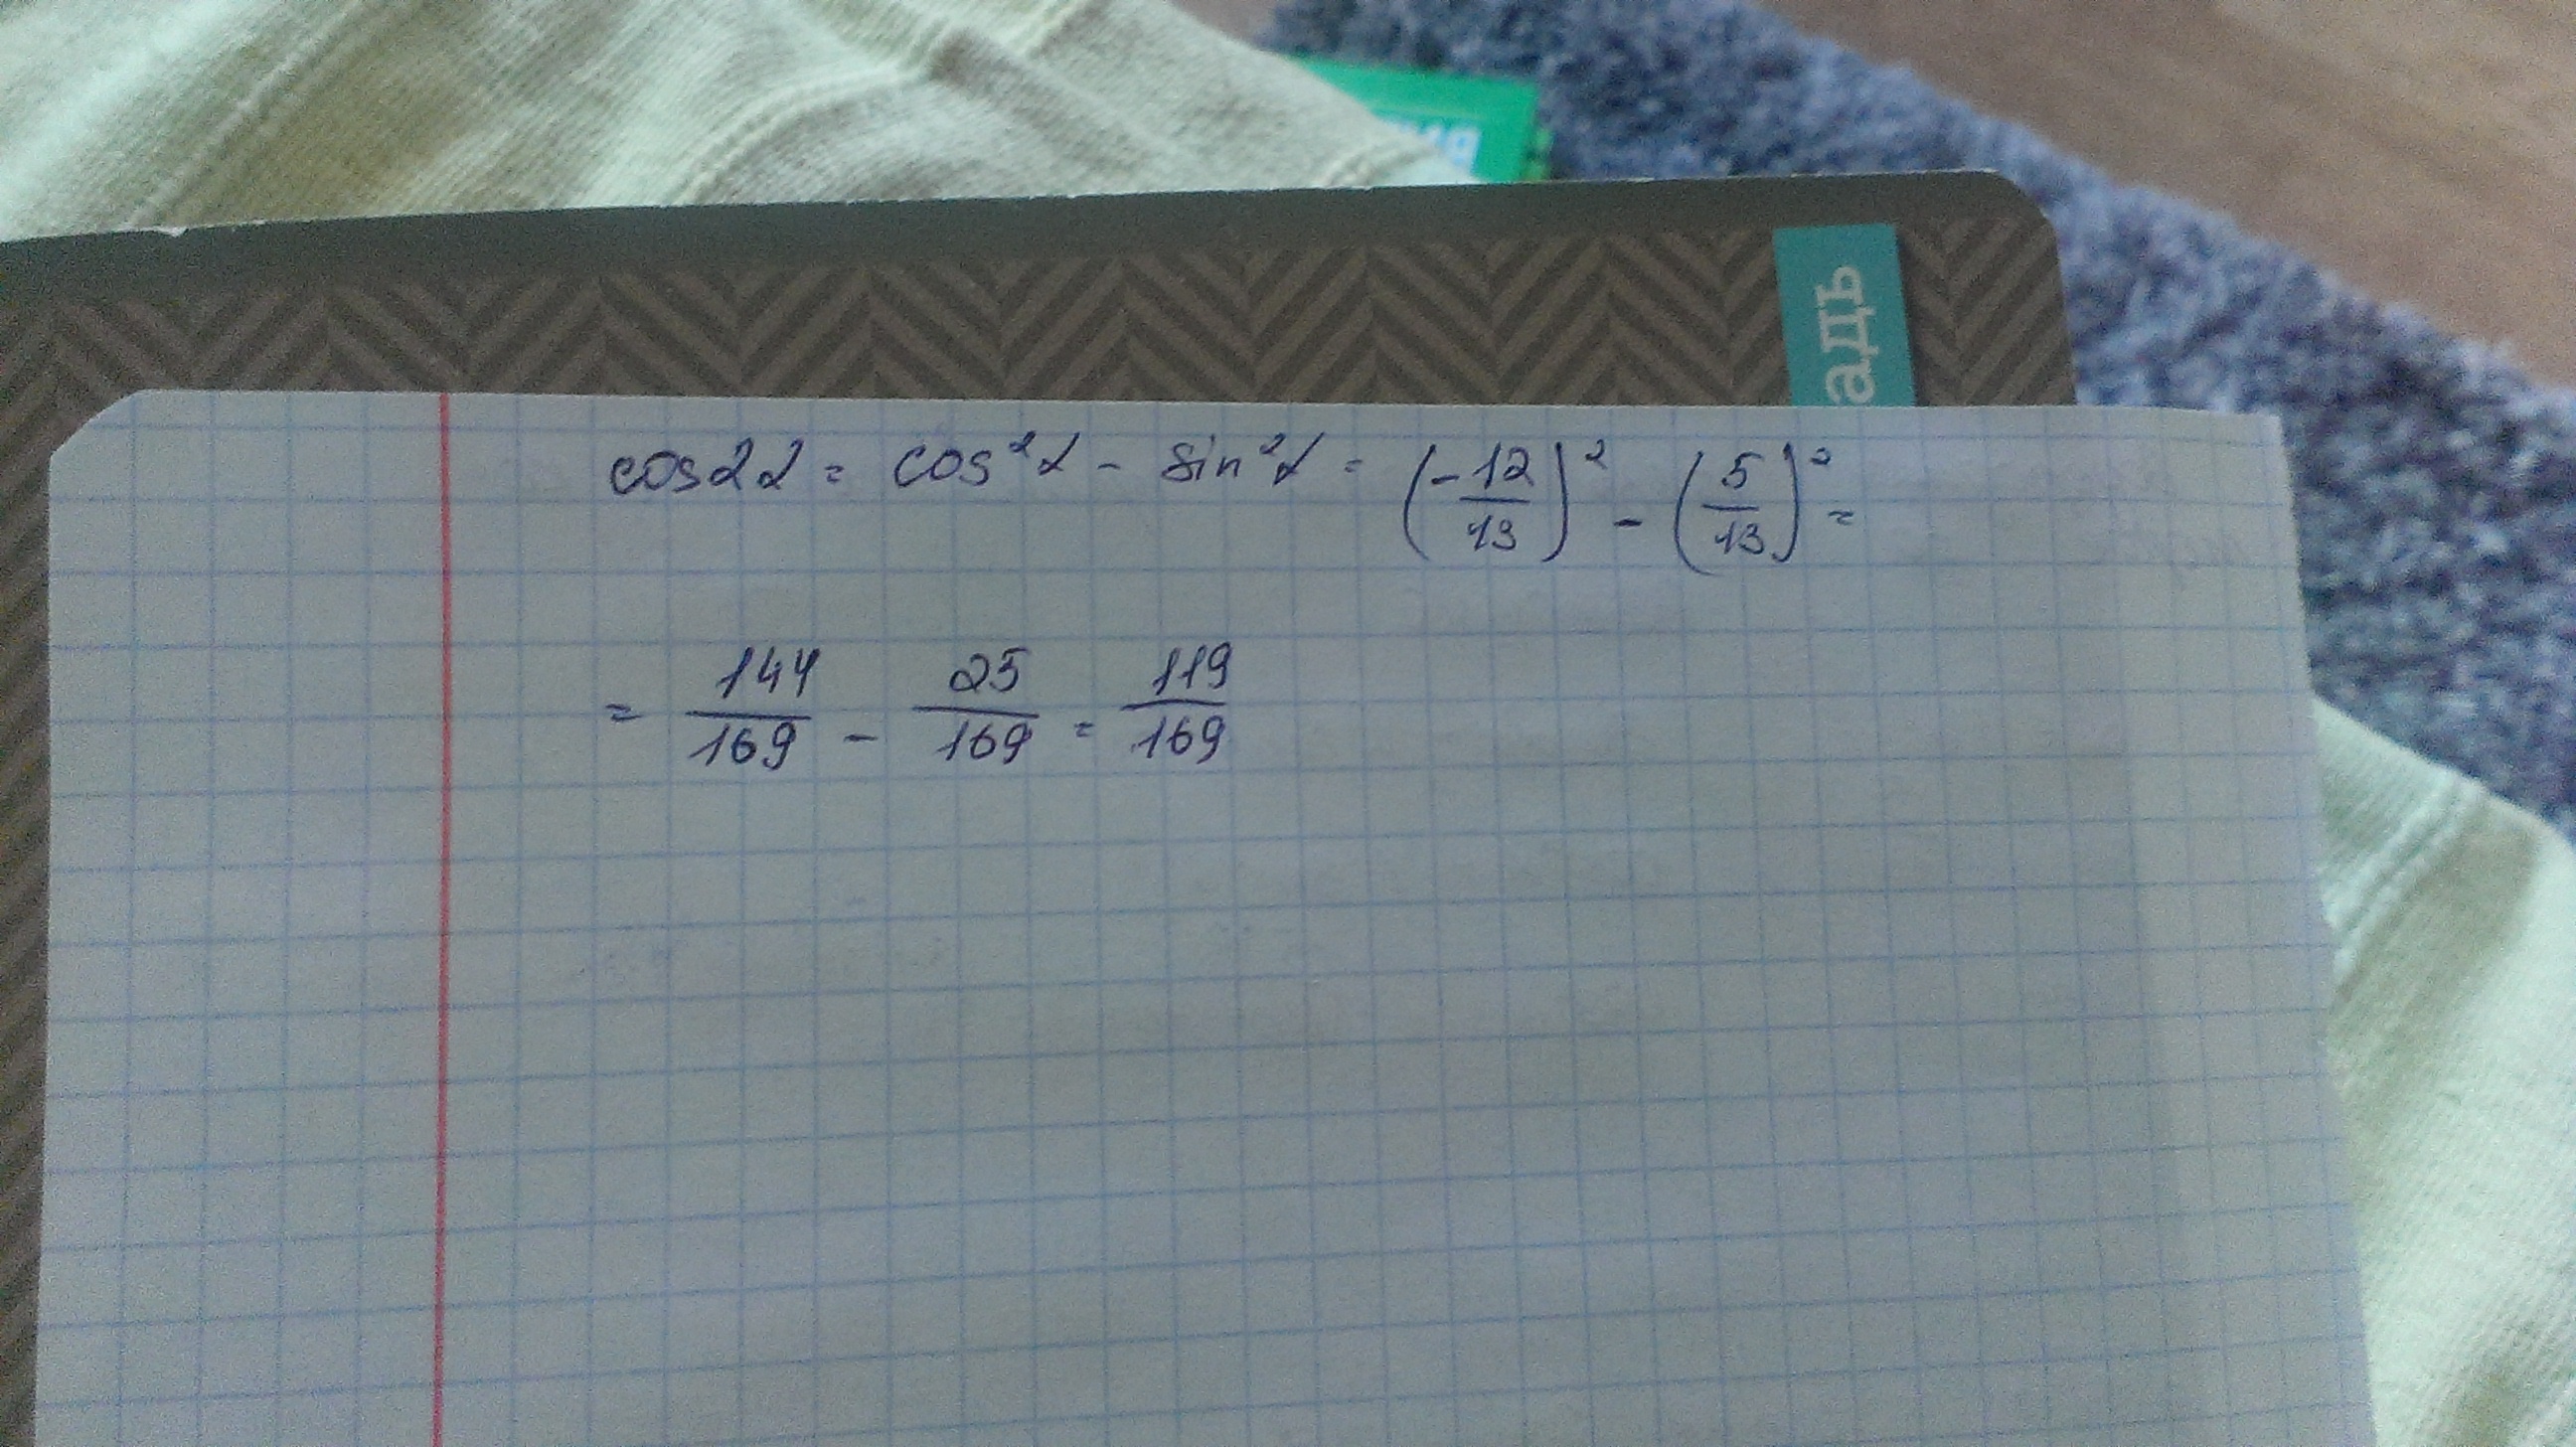 адь
cos2α = cos²α - sin²α = (-12/13)² - (5/13)² =
= 144/169 - 25/169 = 119/169